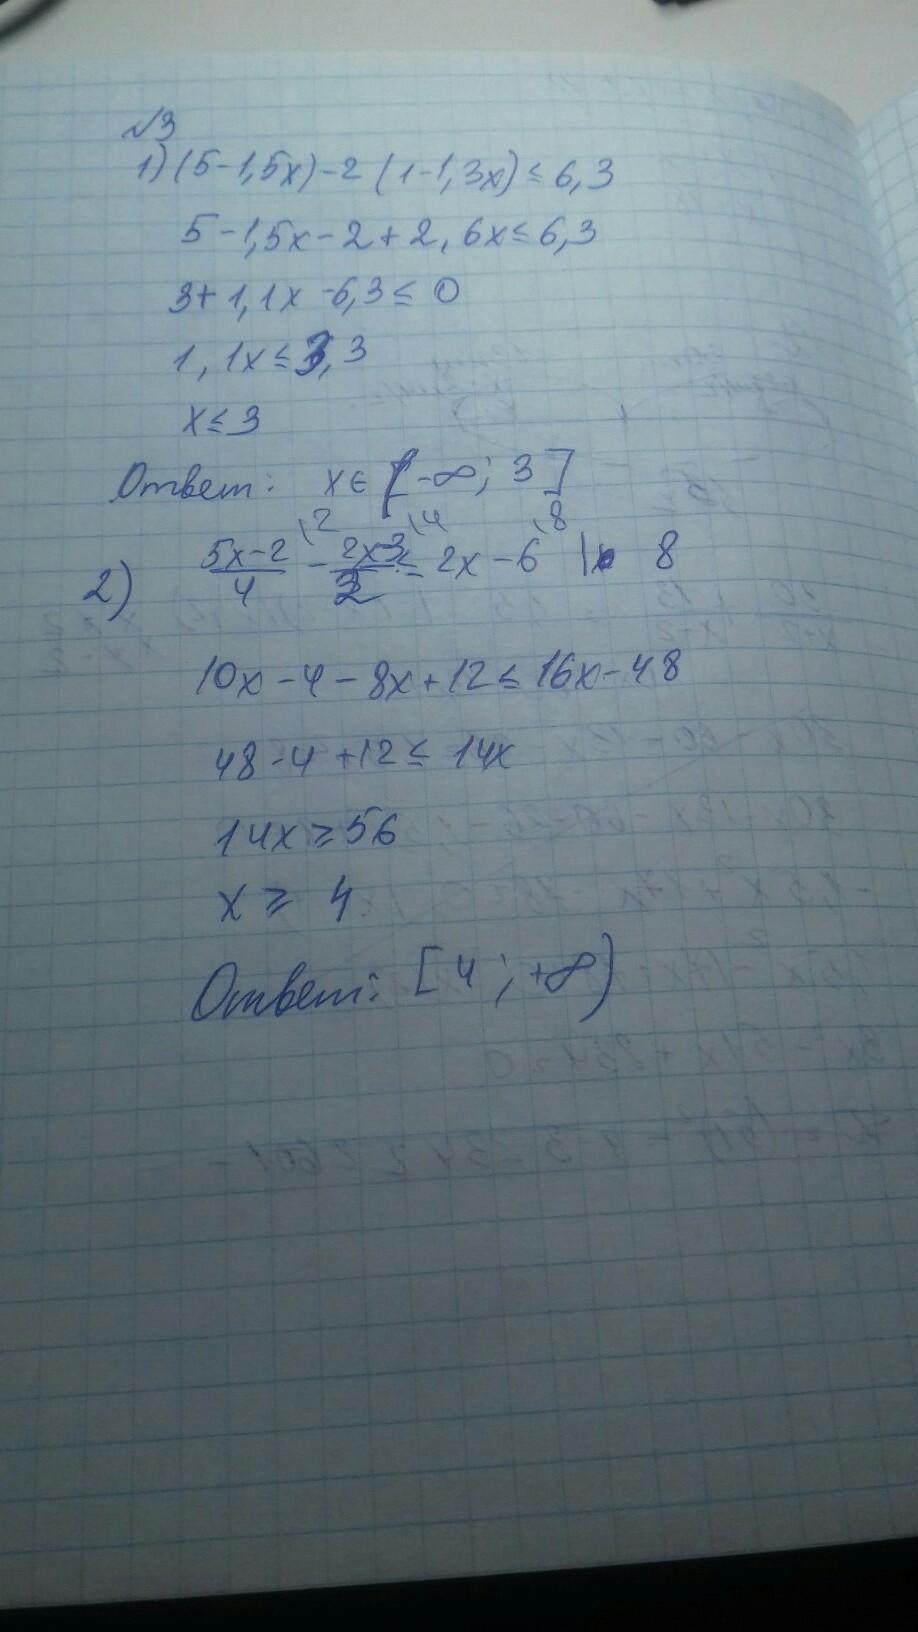 √3
1) (5-1,5x)-2(1-1,3x) ≤ 6,3
5-1,5x-2+2,6x ≤ 6,3
3+1,1x-6,3 ≤ 0
1,1x ≤ 3,3
x ≤ 3
Ответ: x ∈ (-∞; 3]
2) (5x-2)/4 \2 - (2x-3)/2 \4 ≤ 2x-6 \8 | 8
10x-4-8x+12 ≤ 16x-48
48-4+12 ≤ 14x
14x ≥ 56
x ≥ 4
Ответ: [4; +∞)